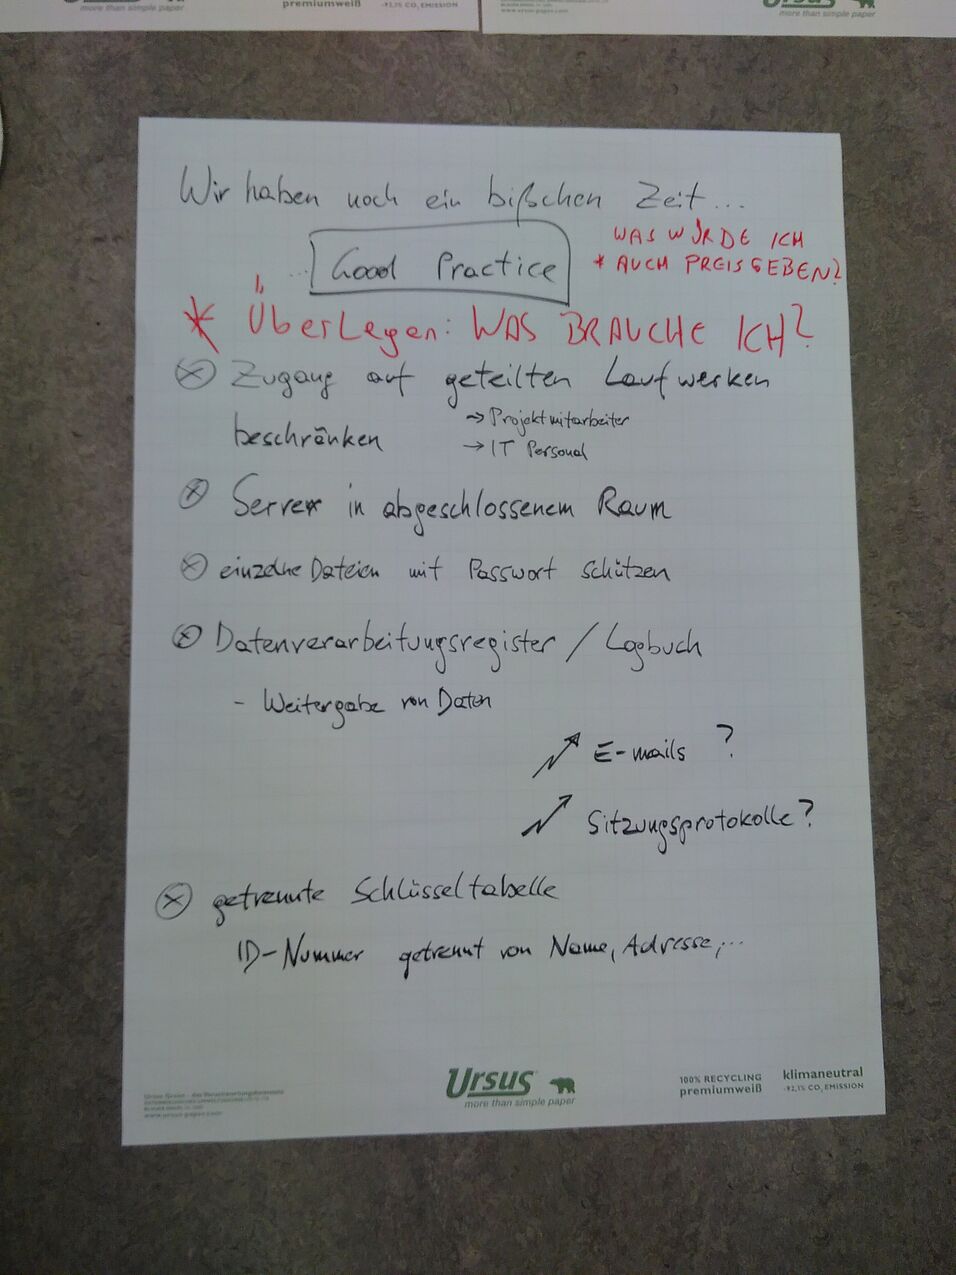 more than simple paper
premiumweiß
-92,1% CO₂ EMISSION
Ursus
more than simple paper
Wir haben noch ein bißchen Zeit...
... Good Practice
WAS WÜRDE ICH
* AUCH PREISGEBEN?
* Überlegen: WAS BRAUCHE ICH?
⊗ Zugang auf geteilten Laufwerken
beschränken
→ Projektmitarbeiter
→ IT Personal
⊗ Server in abgeschlossenem Raum
⊗ einzelne Dateien mit Passwort schützen
⊗ Datenverarbeitungsregister / Logbuch
- Weitergabe von Daten
E-mails ?
Sitzungsprotokolle?
⊗ getrennte Schlüsseltabelle
ID-Nummer getrennt von Name, Adresse,...
Ursus
more than simple paper
100% RECYCLING
premiumweiß
klimaneutral
-92,1% CO₂ EMISSION